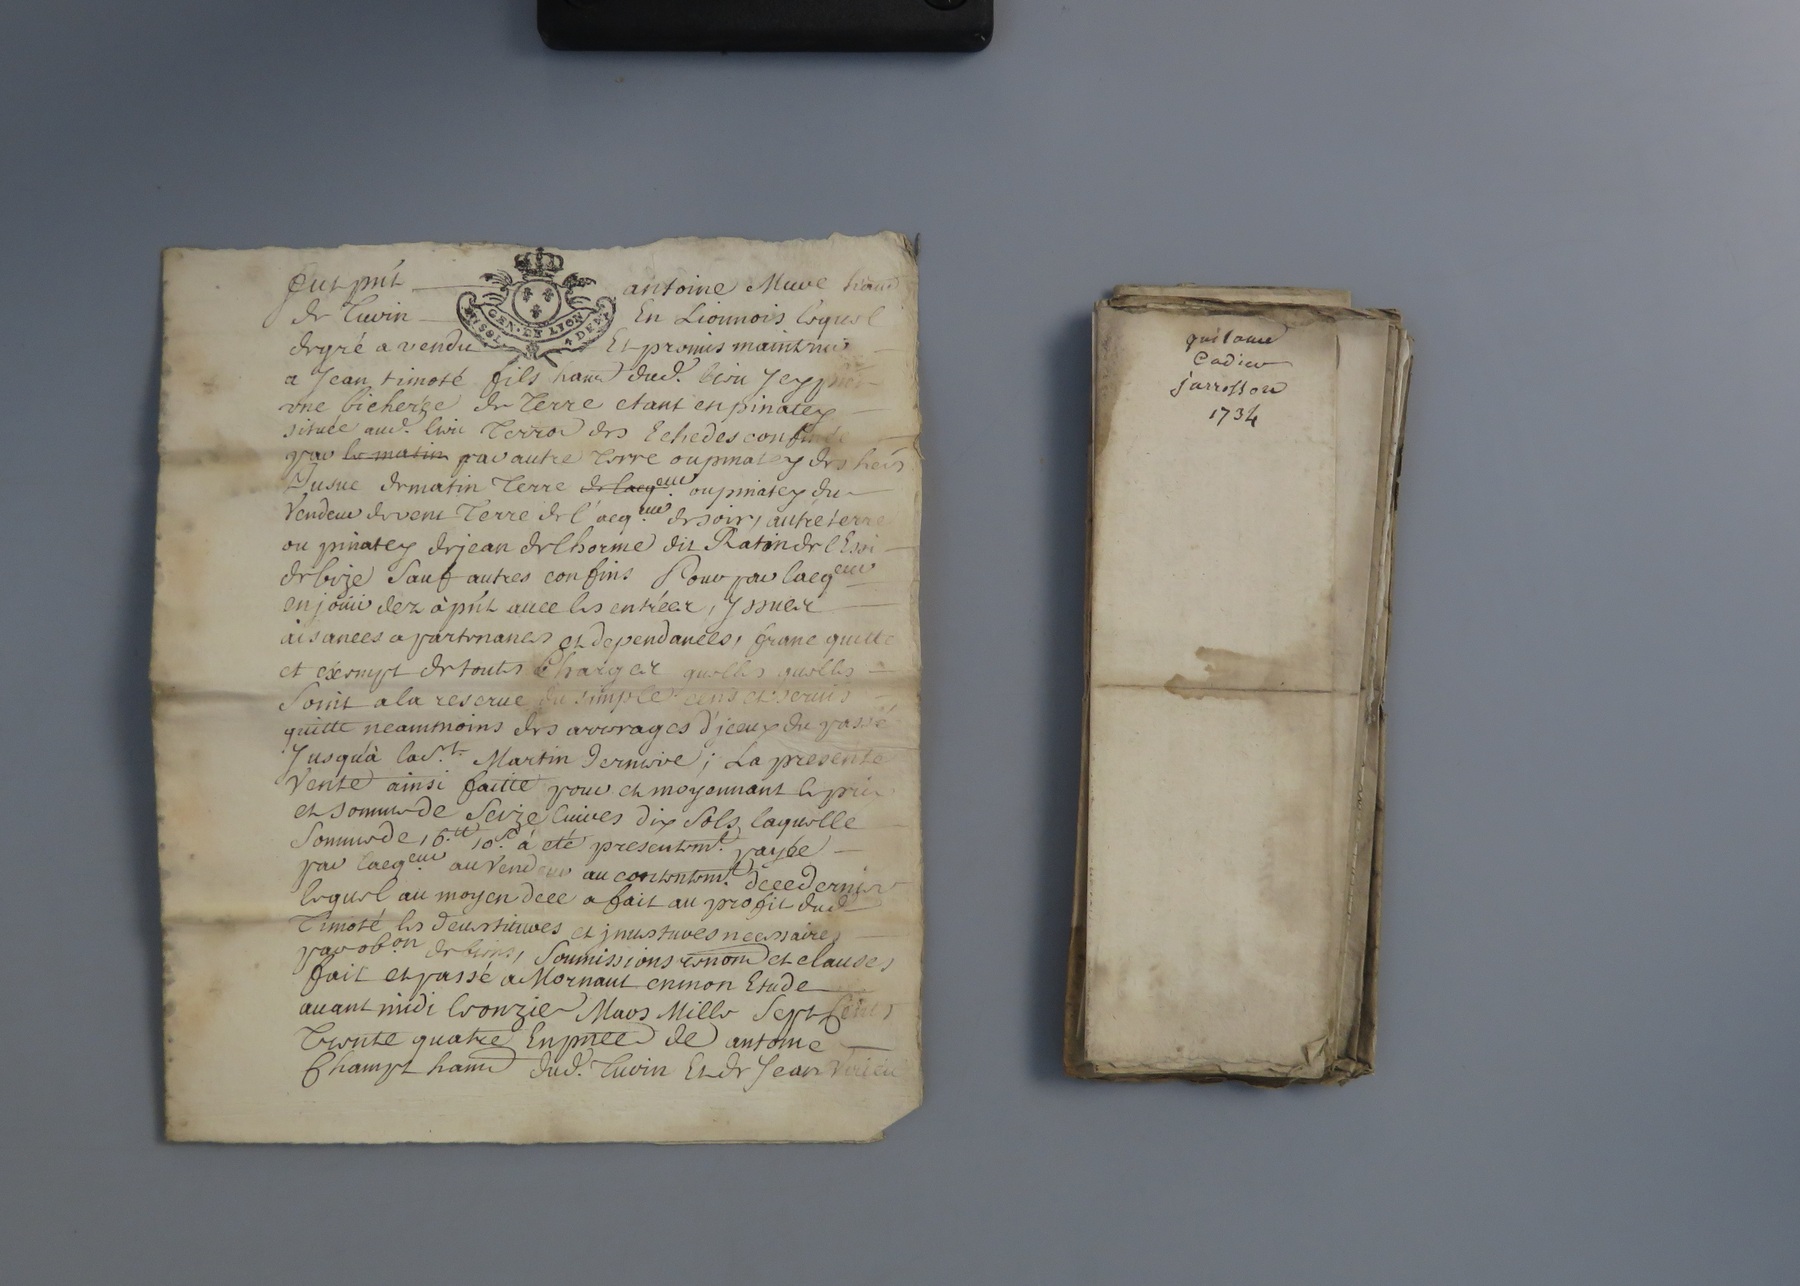 fut pnt antoine Muve hañd
de Tuvin En Lionnois lequel
degré a vendu Et promis maintenir
a Jean timoté fils hañd dud. lieu Icy pnt
une bicherée de Terre etant en pinatey
située aud. lieu Terroir des Echedes confinée
par le matin par autre terre ou pinatey des heñs
de matin Terre de lacqeur ou pinatey du
Vendeur de vent Terre de l'acqeur de soir, autre terre
ou pinatey de jean delhorme dit Ratin de l'Essi
de bize Sauf autres confins Pour par lacqeur
en jouir dez à pnt avec les entrées, yssues
aisances apartenances et dependances, franc quitte
et exempt de toutes Charges quelles quelles
Soint a la reserve du simple cens et servis
quitte neammoins des arrerages d'jceux du passé
Jusquà la St. Martin derniere ; La presente
Vente ainsi faitte pour et moyennant le prix
et somme de Seize livres dix Sols, laquelle
Somme de 16tt 10s à eté presentemt. payée
par lacqeur au Vendeur au contentemt. d'ce dernier
lequel au moyen d'ce a fait au profit dud.
Timoté les devestitures et jnvestitures necessaires
par obon de biens, Soumissions renoñ et clauses
fait et passé a Mornant en mon Etude
avant midi le onzie Mars Mille Sept Cents
Trente quatre En pñce de antoine
Champt hañd dud. Tuvin Et de Jean
GEN. DE LYON
guilaume
Cadier
jarrosson
1734